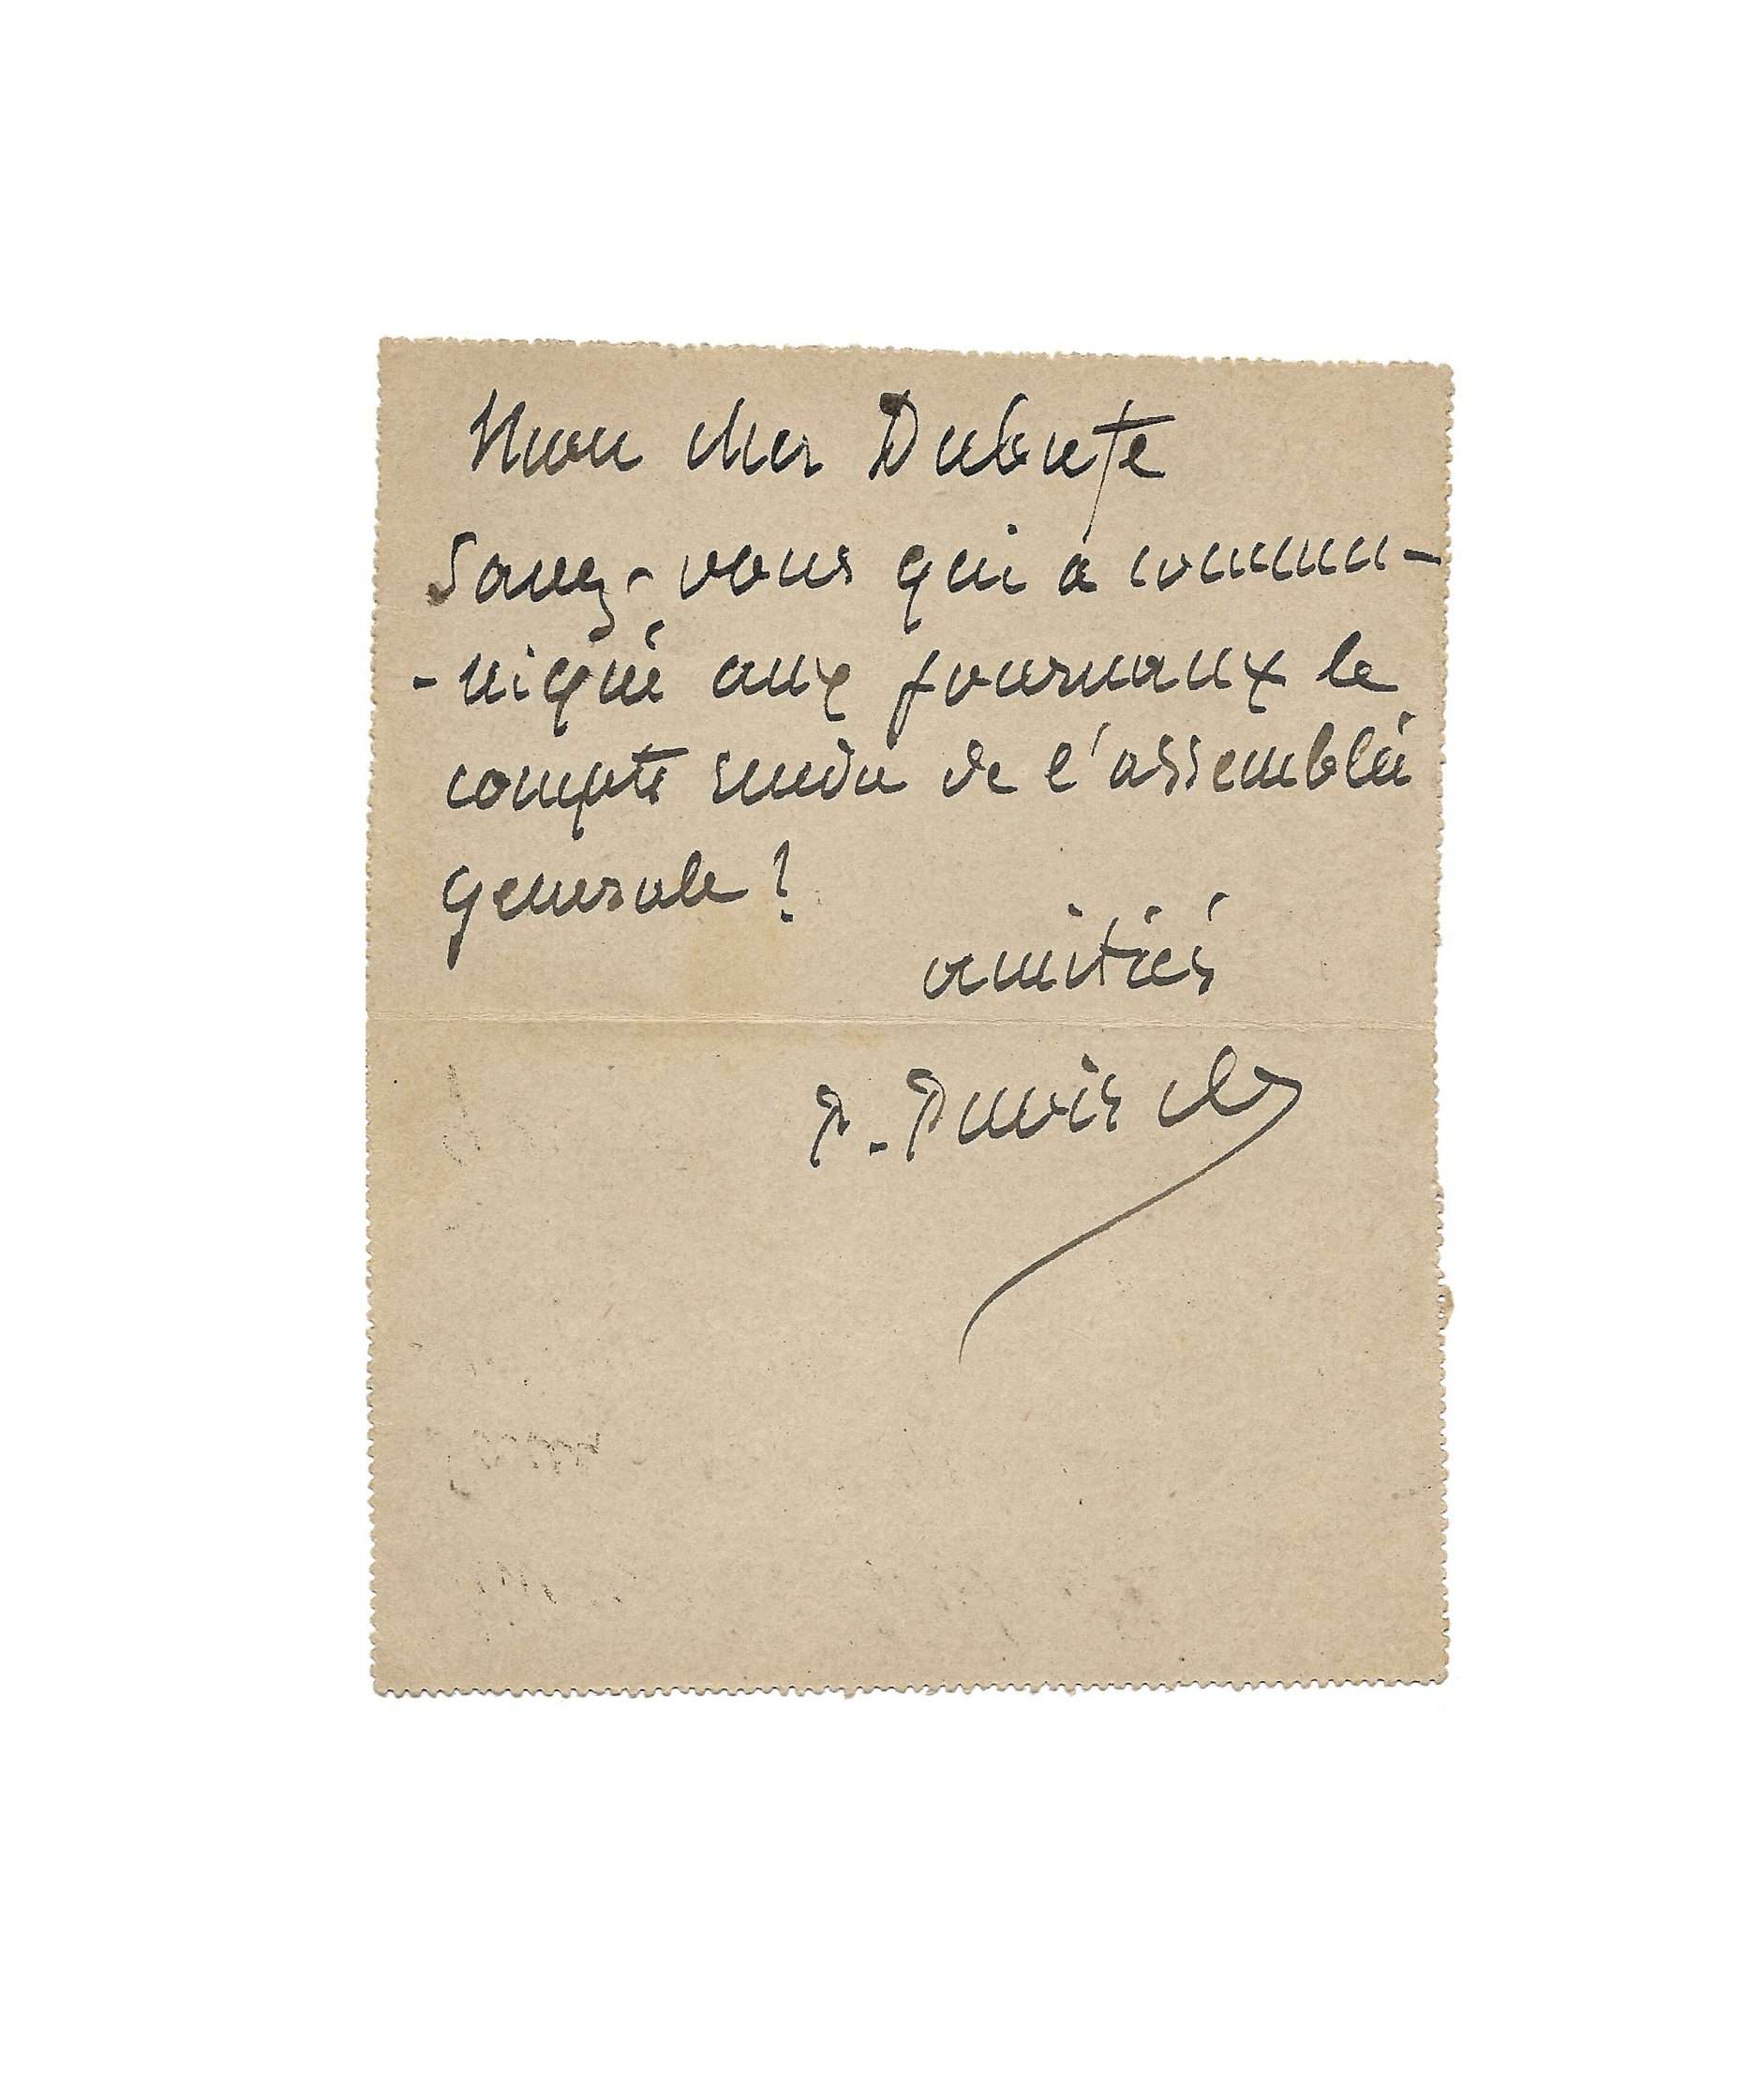 Mon cher Dubufe
Savez-vous qui a commu-
-niqué aux journaux le
compte rendu de l'assemblée
generale?
amitiés
P. Puvis de Ch